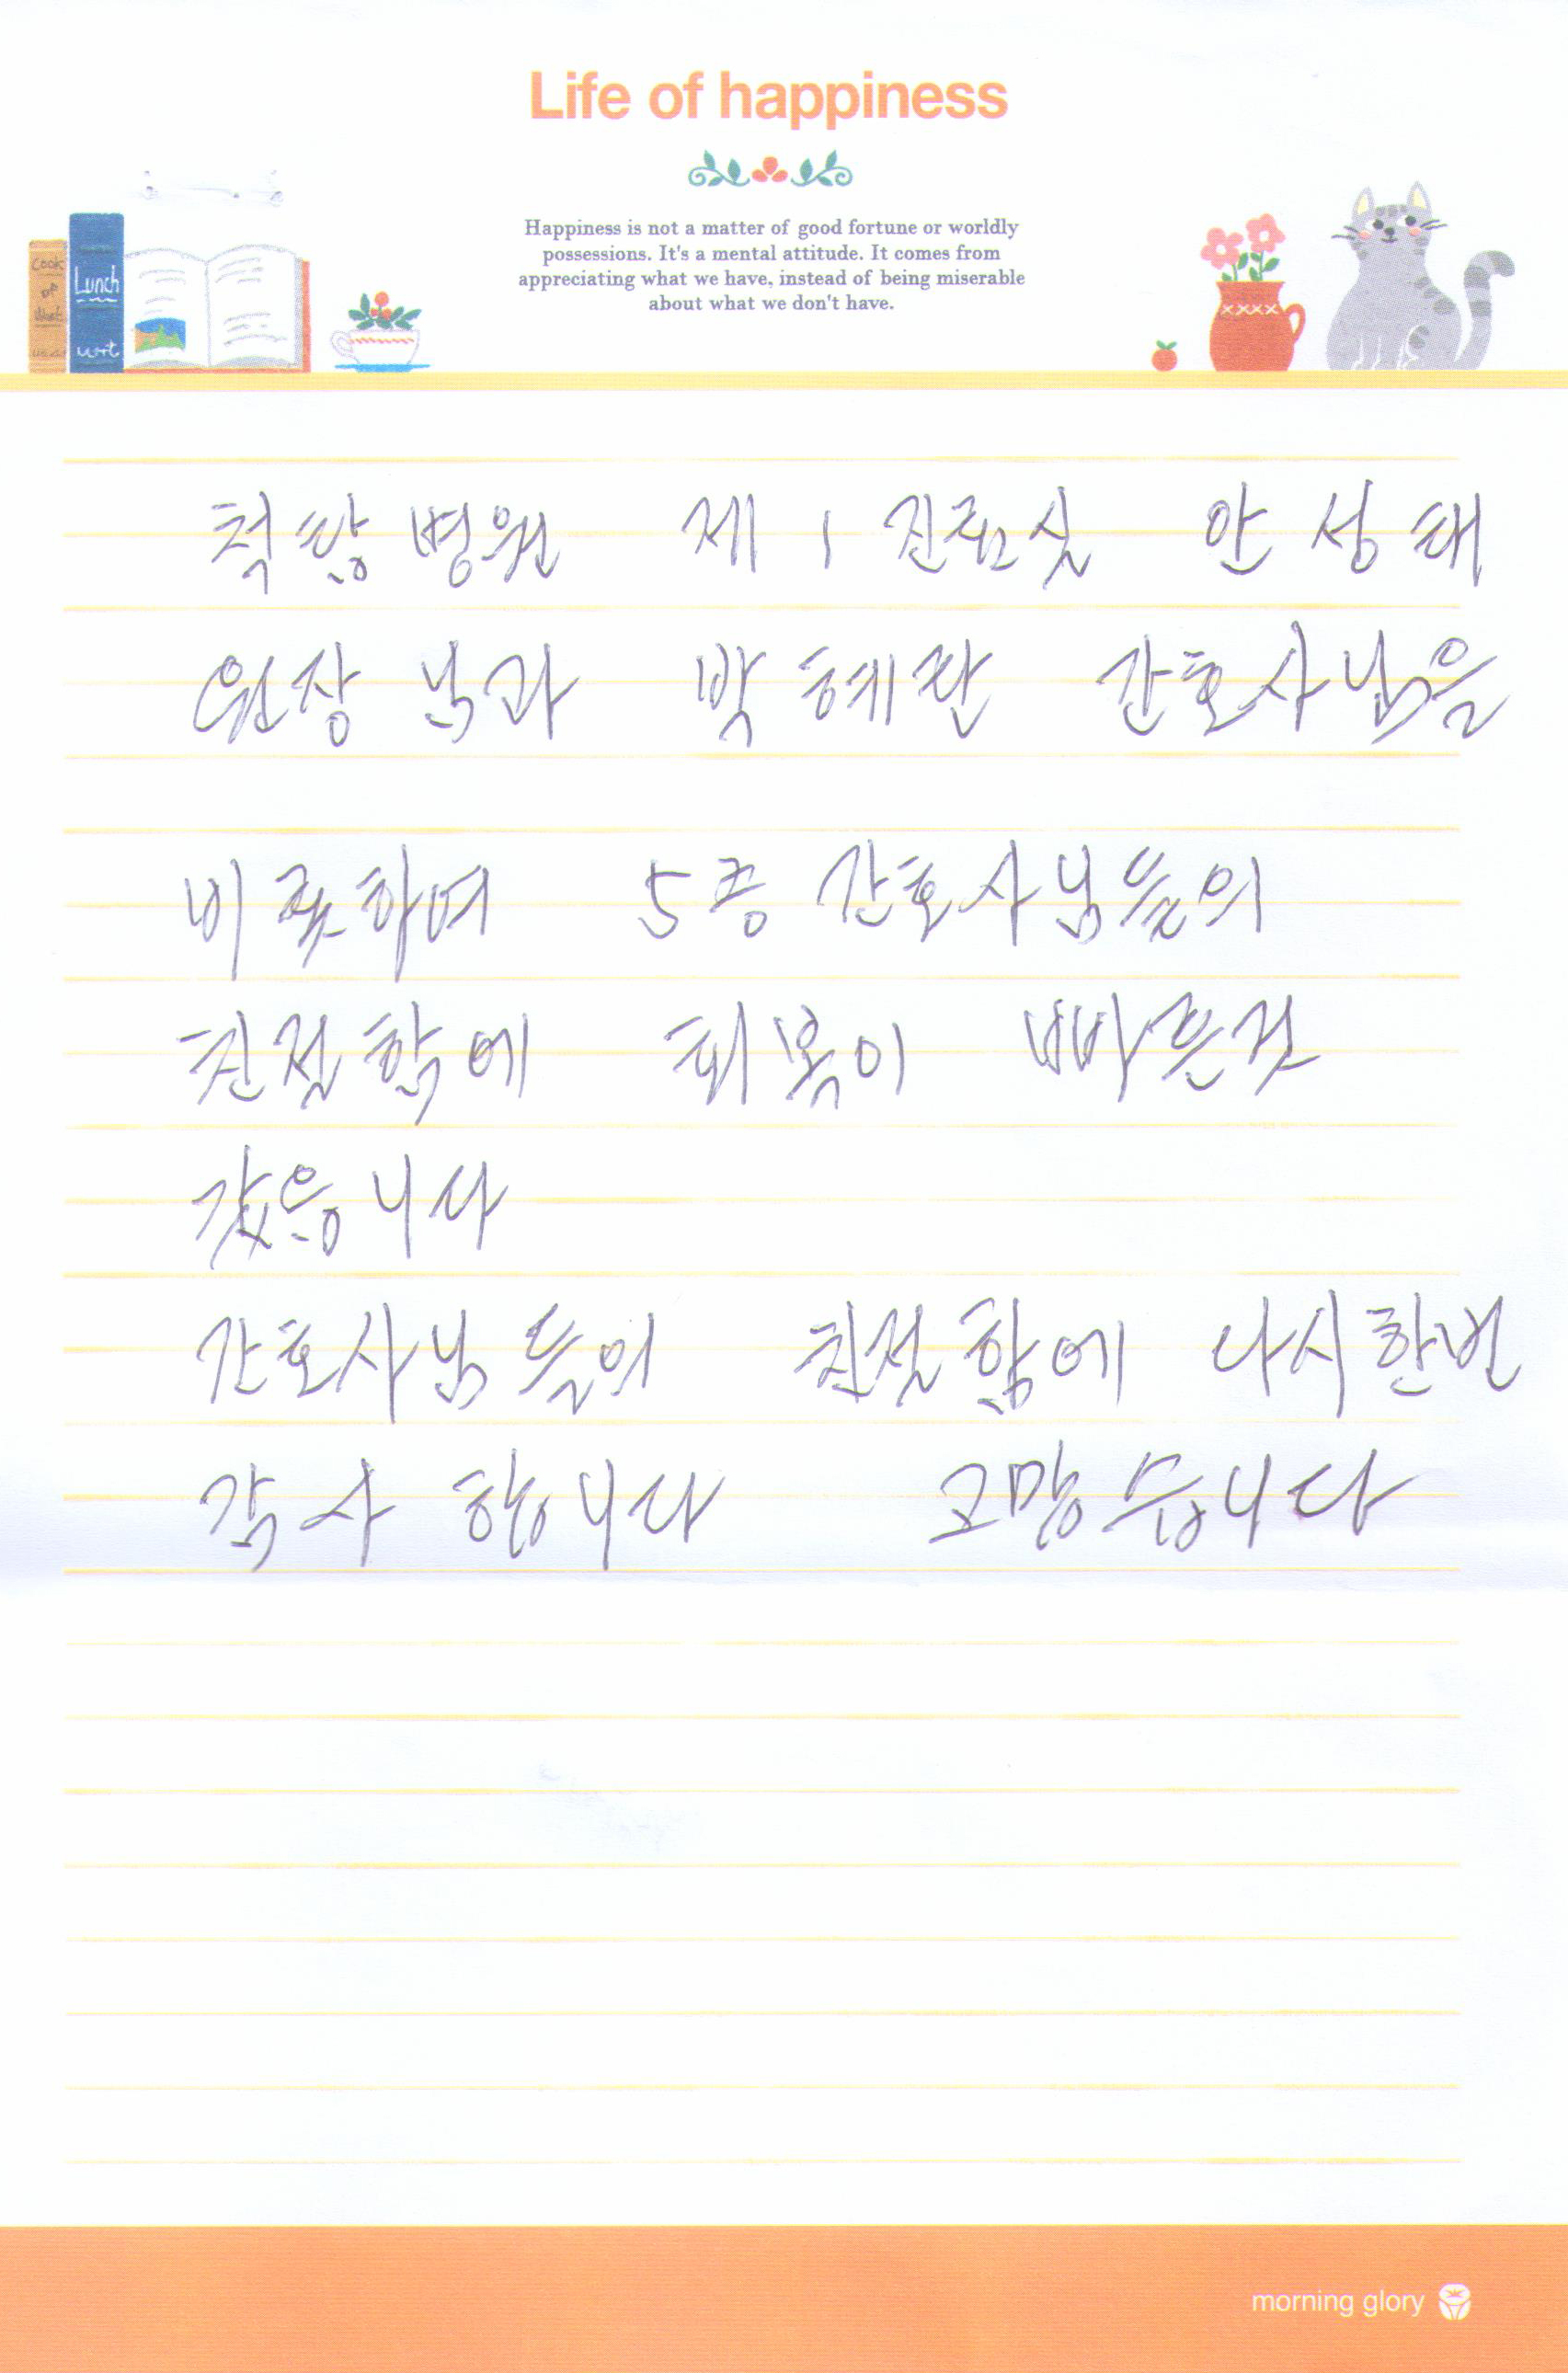 Life of happiness
Happiness is not a matter of good fortune or worldly
possessions. It's a mental attitude. It comes from
appreciating what we have, instead of being miserable
about what we don't have.
Cook
of
Lunch
척탑병원 제 1 진료실 안성태
원장님과 박혜란 간호사님을
비롯하여 5층 간호사님들의
친절함에 회복이 빠른것
같읍니다
간호사님들의 친절함에 다시한번
감사 합니다 고맙습니다
morning glory